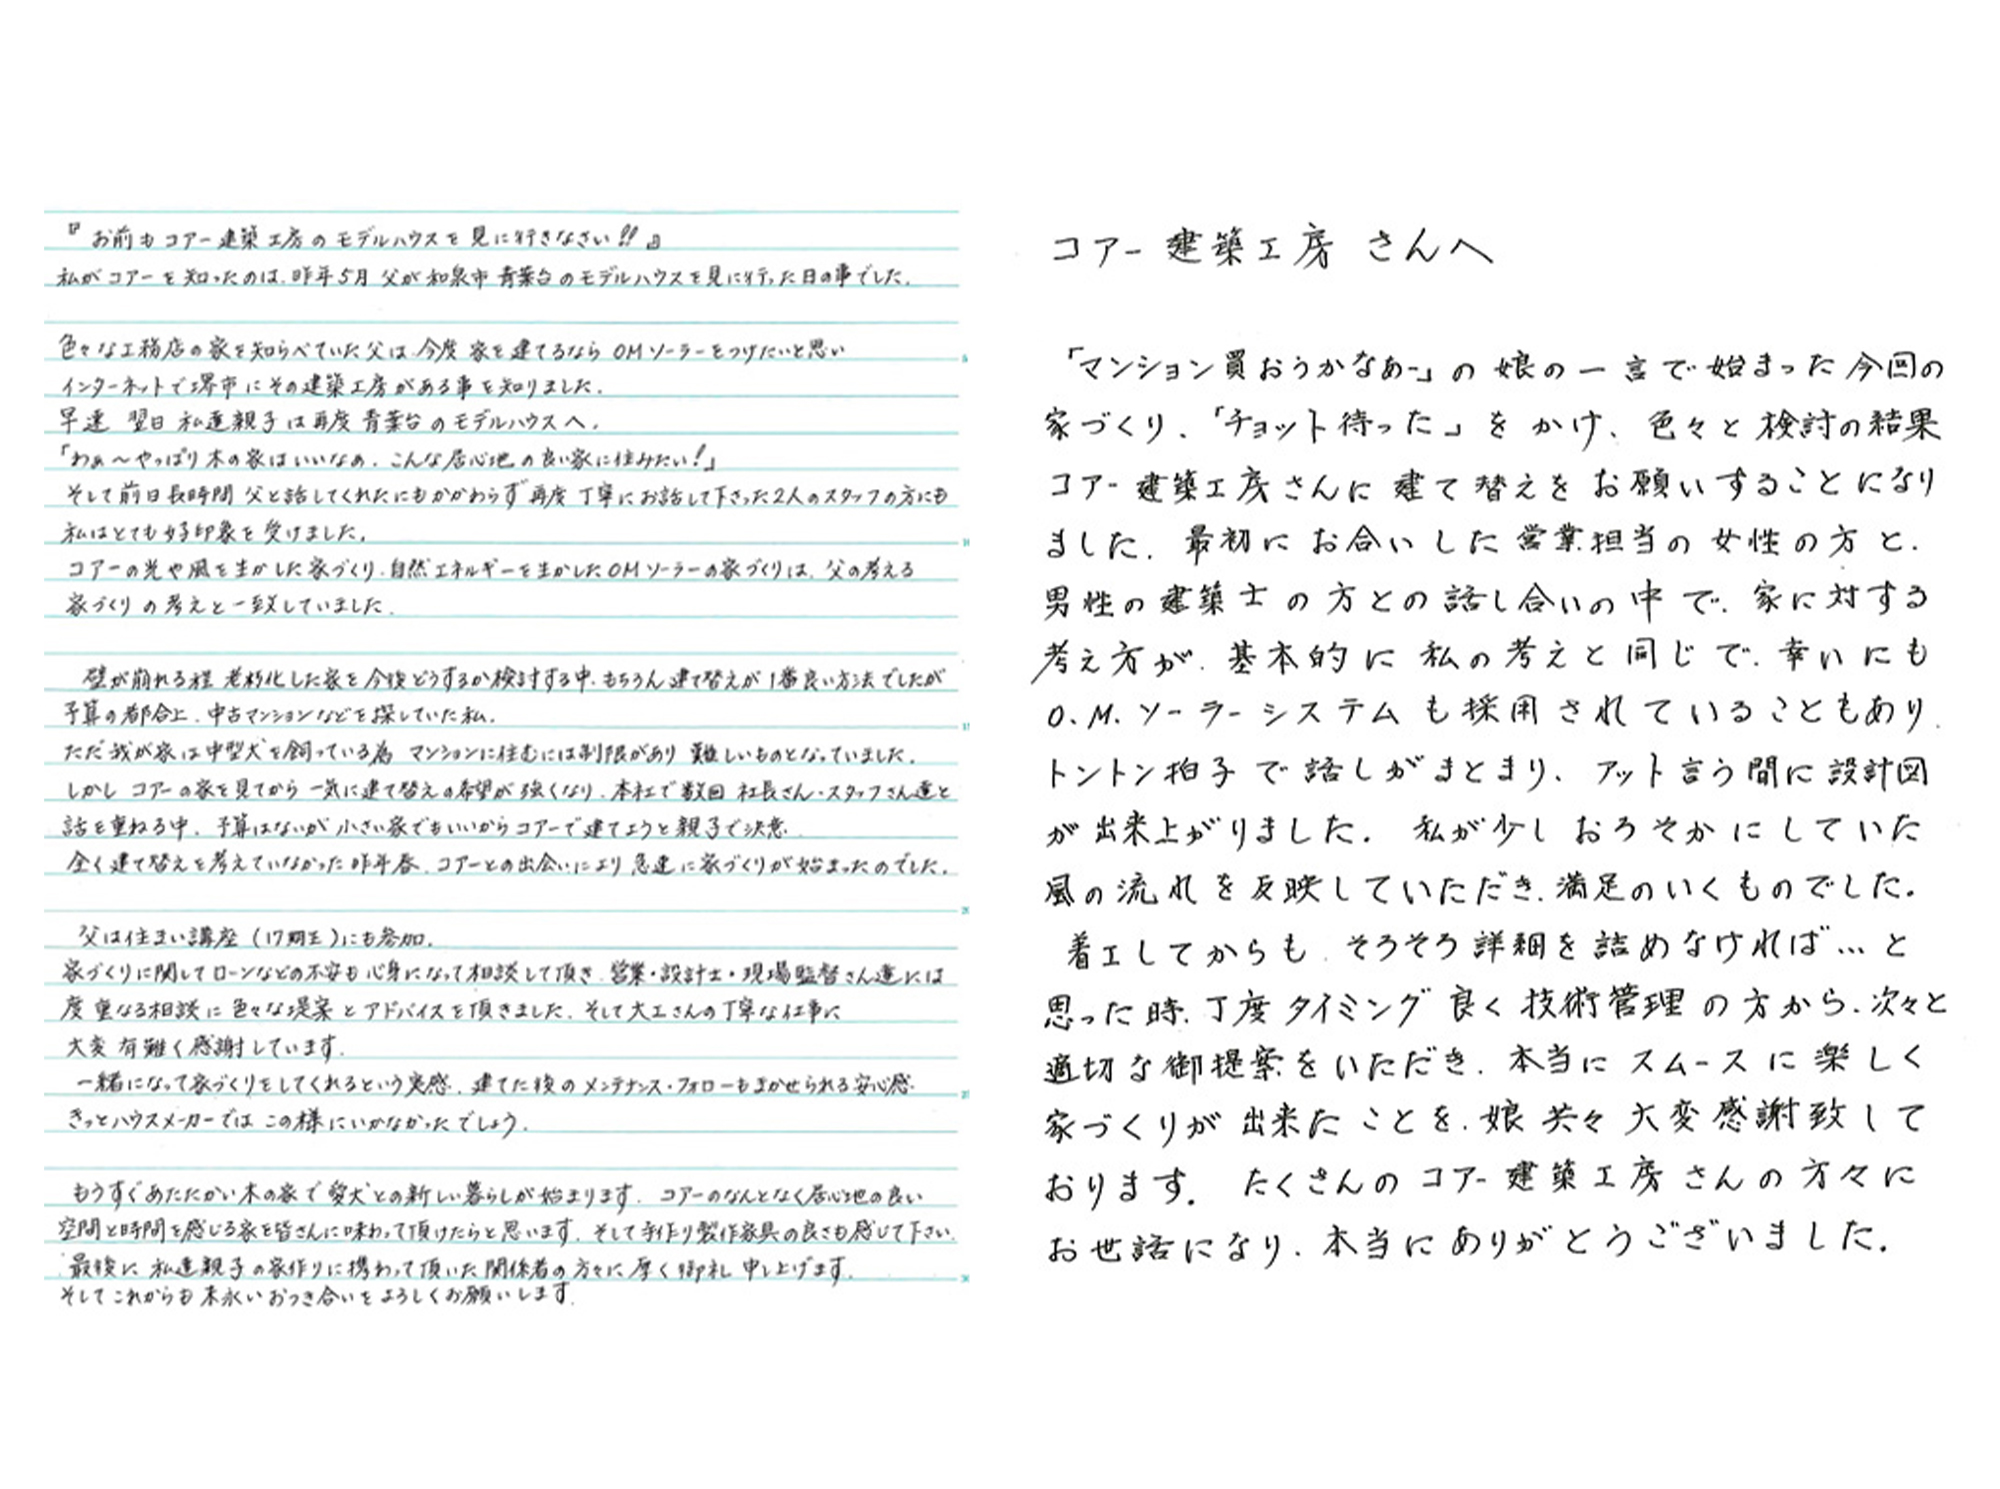 『お前もコアー建築工房のモデルハウスを見に行きなさい!!』
私がコアーを知ったのは、昨年5月 父が和泉市青葉台のモデルハウスを見に行った日の事でした。
色々な工務店の家を知らべていた父は、今度 家を建てるなら OMソーラーをつけたいと思い
インターネットで堺市にその建築工房がある事を知りました。
早速 翌日 私達親子は再度 青葉台のモデルハウスへ。
「わぁ〜やっぱり木の家はいいなぁ、こんな居心地の良い家に住みたい!」
そして前日長時間 父と話してくれたにもかかわらず 再度 丁寧にお話して下さった2人のスタッフの方にも
私はとても好印象を受けました。
コアーの光や風を生かした家づくり、自然エネルギーを生かしたOMソーラーの家づくりは、父の考える
家づくりの考えと一致していました。
壁が崩れる程 老朽化した家を今後どうするか検討する中、もちろん建て替えが1番良い方法でしたが
予算の都合上、中古マンションなどを探していた私。
ただ我が家は中型犬を飼っている為 マンションに住むには制限があり 難しいものとなっていました。
しかし コアーの家を見てから 一気に建て替えの希望が強くなり、本社で数回 社長さん・スタッフさん達と
話を重ねる中、予算はないが 小さい家でもいいからコアーで建てようと親子で決意
全く建て替えを考えていなかった昨年春、コアーとの出会いにより 急速に家づくりが始まったのでした。
父は住まい講座(17期生)にも参加。
家づくりに関してローンなどの不安も心身になって相談して頂き、営業・設計士・現場監督さん達には
度重なる相談に色々な提案とアドバイスを頂きました、そして大工さんの丁寧な仕事に
大変有難く感謝しています。
一緒になって家づくりをしてくれるという実感、建てた後のメンテナンス・フォローもまかせられる安心感
きっとハウスメーカーでは この様にいかなかったでしょう。
もうすぐあたたかい木の家で愛犬との新しい暮らしが始まります。コアーのなんとなく居心地の良い
空間と時間を感じる家を皆さんに味わって頂けたらと思います。そして手作り製作家具の良さも感じて下さい。
最後に 私達親子の家作りに携わって頂いた関係者の方々に厚く御礼申し上げます。
そしてこれからも末永いおつき合いをよろしくお願いします。
コアー建築工房さんへ
「マンション買おうかなあー」の娘の一言で始まった今回の
家づくり、「チョット待った」をかけ、色々と検討の結果
コアー建築工房さんに建て替えをお願いすることになり
ました。最初にお合いした営業担当の女性の方と、
男性の建築士の方との話し合いの中で、家に対する
考え方が、基本的に私の考えと同じで、幸いにも
O.M.ソーラーシステムも採用されていることもあり、
トントン拍子で話しがまとまり、アット言う間に設計図
が出来上がりました。私が少しおろそかにしていた
風の流れを反映していただき、満足のいくものでした。
着工してからも、そろそろ詳細を詰めなければ…と
思った時、丁度タイミング良く技術管理の方から、次々と
適切な御提案をいただき、本当にスムースに楽しく
家づくりが出来たことを、娘共々大変感謝致して
おります。たくさんのコアー建築工房さんの方々に
お世話になり、本当にありがとうございました。